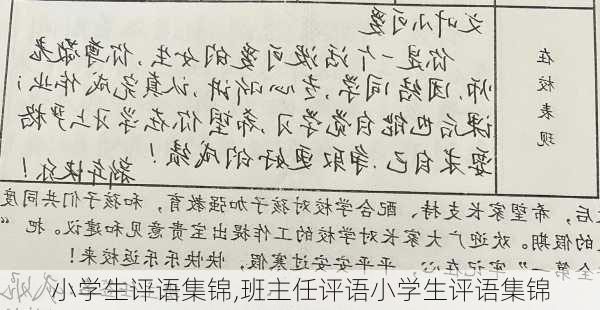 小可爱
你是一个活泼可爱的女生，你尊敬老
师，团结同学，专心听讲，认真完成作业；
课后也能自觉学习，希望你在学习上严格
要求自己，争取更好的成绩！
新年快乐！
在校表现
后，希望家长支持、配合学校对孩子加强教育，和孩子们共同度
的假期。欢迎广大家长对学校的工作提出宝贵意见和建议。把“
全第一”牢记在心，平平安安过寒假，快快乐乐返校来！
小学生评语集锦,班主任评语小学生评语集锦